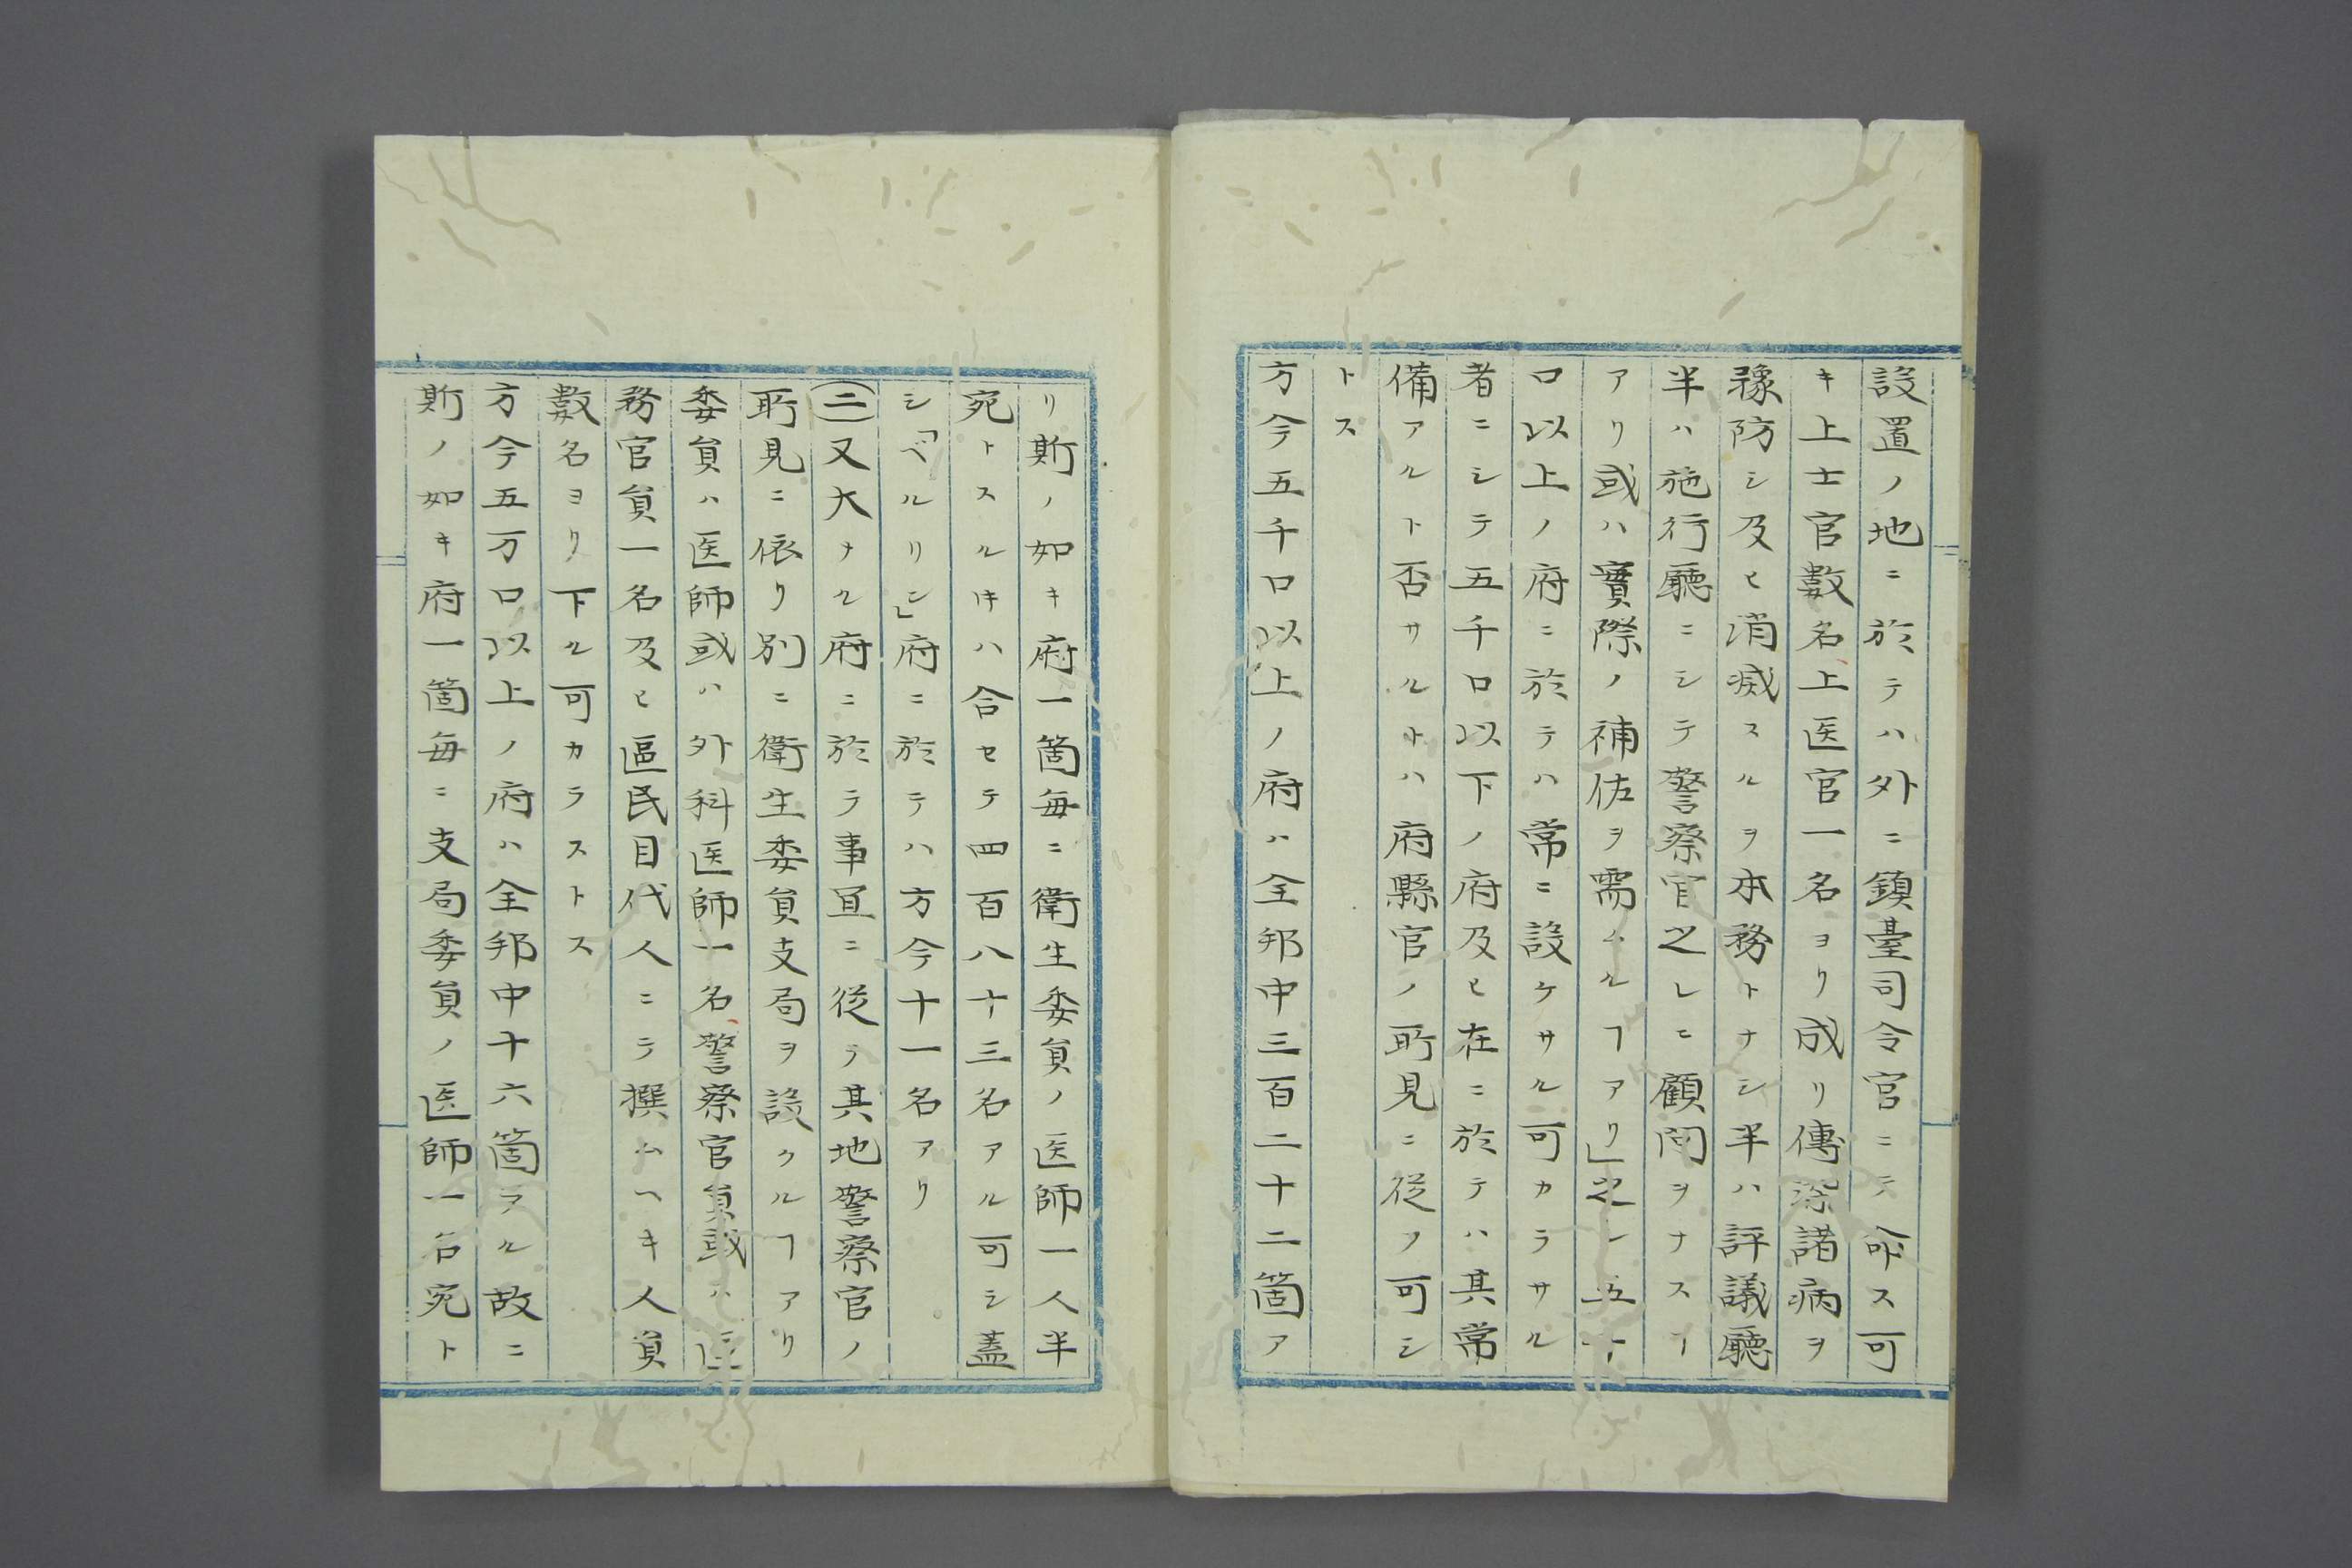 設置ノ地ニ於テハ外ニ鎮臺司令官ニテ命ス可
キ上士官數名、上医官一名ヨリ成リ傳染諸病ヲ
豫防シ及ヒ消滅スルヲ本務トナシ半ハ評議廳
半ハ施行廳ニシテ警察官之レニ顧問ヲナスヿ
アリ或ハ實際ノ補佐ヲ需ムルヿアリ」之レ五千
口以上ノ府ニ於テハ常ニ設ケサル可カラサル
者ニシテ五千口以下ノ府及ヒ在ニ於テハ其常
備アルト否サルトハ府縣官ノ所見ニ従フ可シ
トス
方今五千口以上ノ府ハ全邦中三百二十二箇ア
リ斯ノ如キ府一箇毎ニ衛生委員ノ医師一人半
宛トスルキハ合セテ四百八十三名アル可シ蓋
シ「ベルリン」府ニ於テハ方今十一名アリ
(二)又大ナル府ニ於テ事宜ニ従テ其地警察官ノ
所見ニ依リ別ニ衛生委員支局ヲ設クルヿアリ
委員ハ医師或ハ外科医師一名、警察官員或ハ医
務官員一名及ヒ區民目代人ニテ撰ムヘキ人員
數名ヨリ下ル可カラストス
方今五万口以上ノ府ハ全邦中十六箇ヲル故ニ
斯ノ如キ府一箇毎ニ支局委員ノ医師一名宛ト